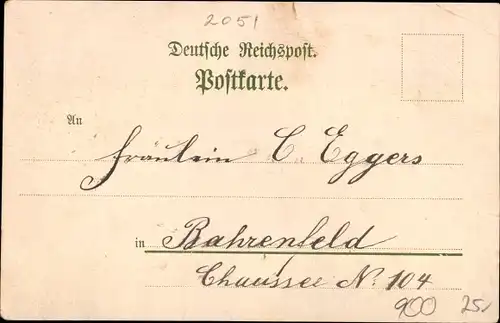 2051
Deutsche Reichspost.
Postkarte.
An
Fräulein C. Eggers
in Bahrenfeld
Chaussee No. 104
900 25,